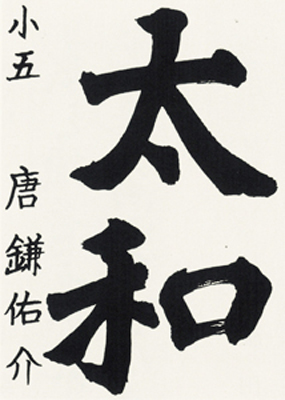 太和
小五 唐鎌佑介